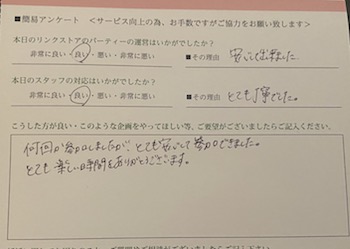 ■簡易アンケート　＜サービス向上の為、お手数ですがご協力をお願い致します＞
本日のリンクストアのパーティーの運営はいかがでしたか？
非常に良い・良い・悪い・非常に悪い　■その理由　安心して出来ました
本日のスタッフの対応はいかがでしたか？
非常に良い・良い・悪い・非常に悪い　■その理由　とても丁寧でした。
こうした方が良い・このような企画をやってほしい等、ご要望がございましたらご記入ください。
何回か参加しましたが、とても安心して参加できました。
とても楽しい時間をありがとうございます。